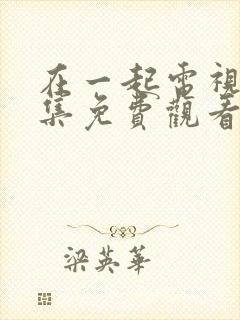 在一起電視
集免費觀看
梁英華